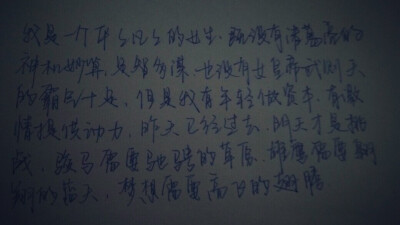 我是一个平平凡凡的女生,既没有诸葛亮的
神机妙算,足智多谋,也没有女皇帝武则天
的霸气十足,但是我有年轻做资本,有激
情提供动力,昨天已经过去,明天才是挑
战,骏马需要驰骋的草原,雄鹰需要翱
翔的蓝天,梦想需要高飞的翅膀